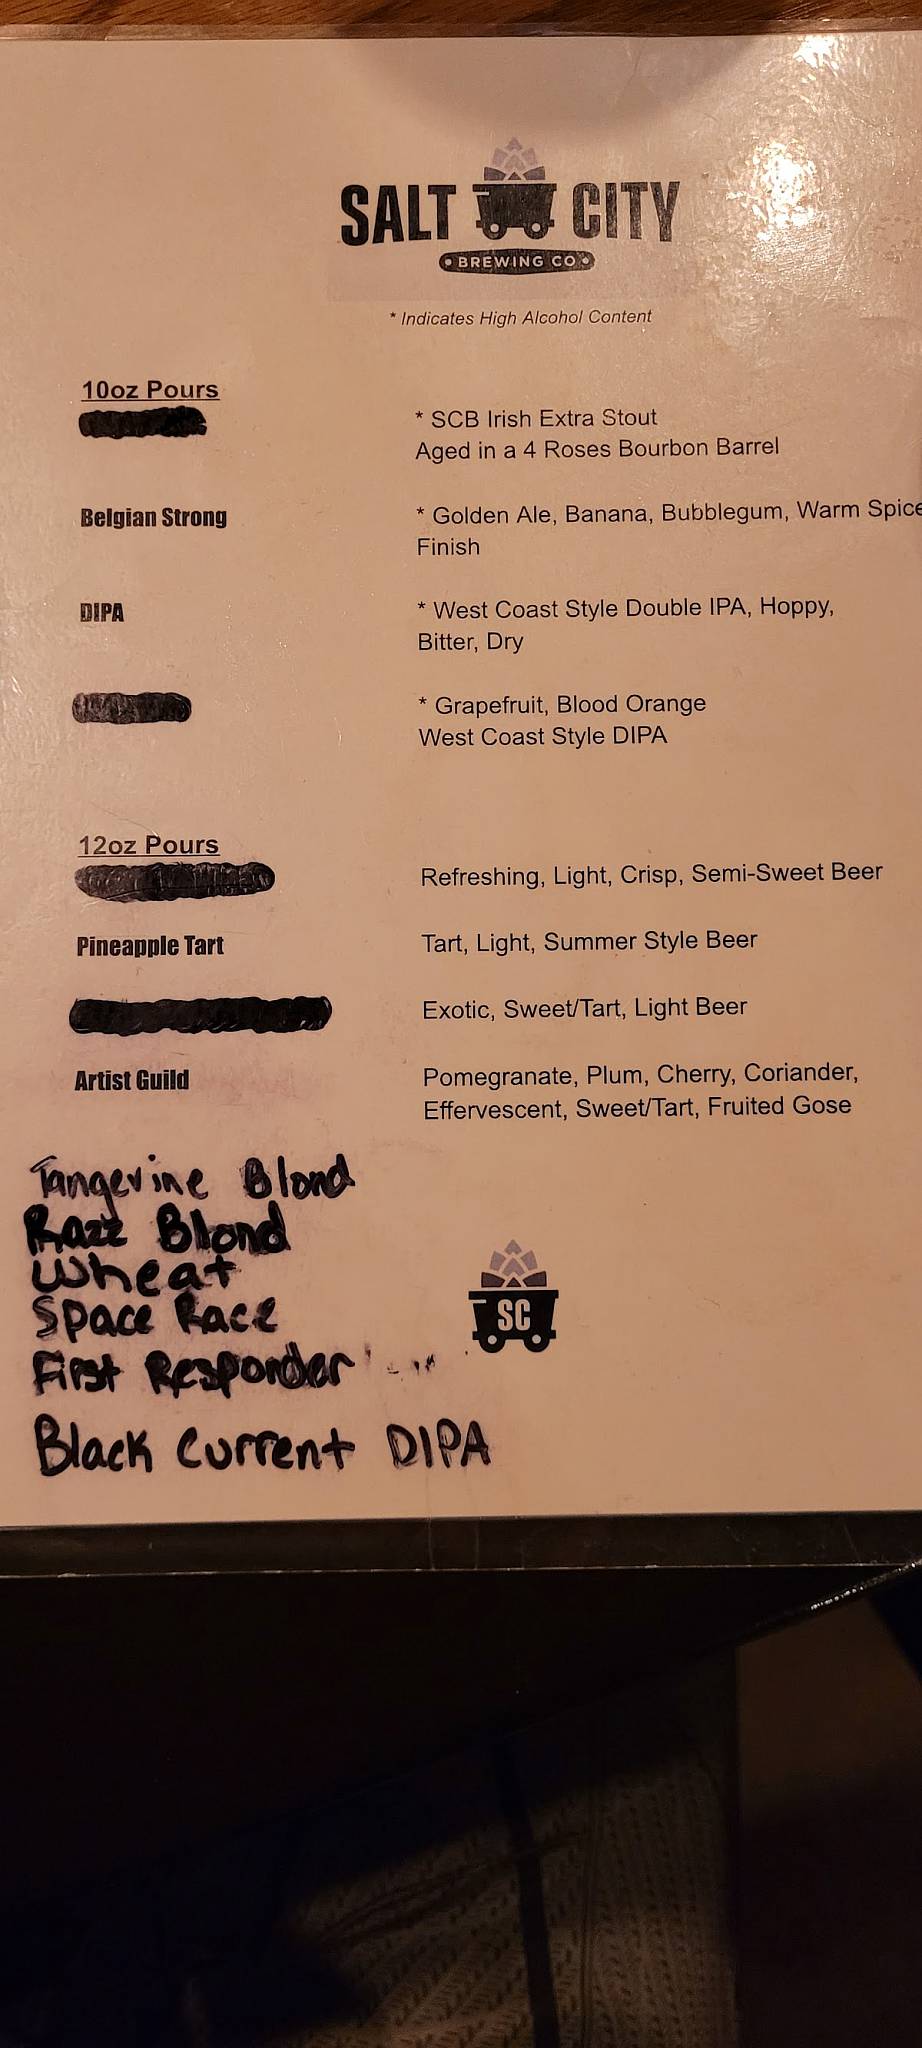 SALT CITY
• BREWING CO •
* Indicates High Alcohol Content
10oz Pours
* SCB Irish Extra Stout
Aged in a 4 Roses Bourbon Barrel
Belgian Strong * Golden Ale, Banana, Bubblegum, Warm Spice
Finish
DIPA * West Coast Style Double IPA, Hoppy,
Bitter, Dry
* Grapefruit, Blood Orange
West Coast Style DIPA
12oz Pours
Refreshing, Light, Crisp, Semi-Sweet Beer
Pineapple Tart Tart, Light, Summer Style Beer
Exotic, Sweet/Tart, Light Beer
Artist Guild Pomegranate, Plum, Cherry, Coriander,
Effervescent, Sweet/Tart, Fruited Gose
Tangerine Blond
Razz Blond
Wheat
Space Race
SC
First Responder
Black Current DIPA